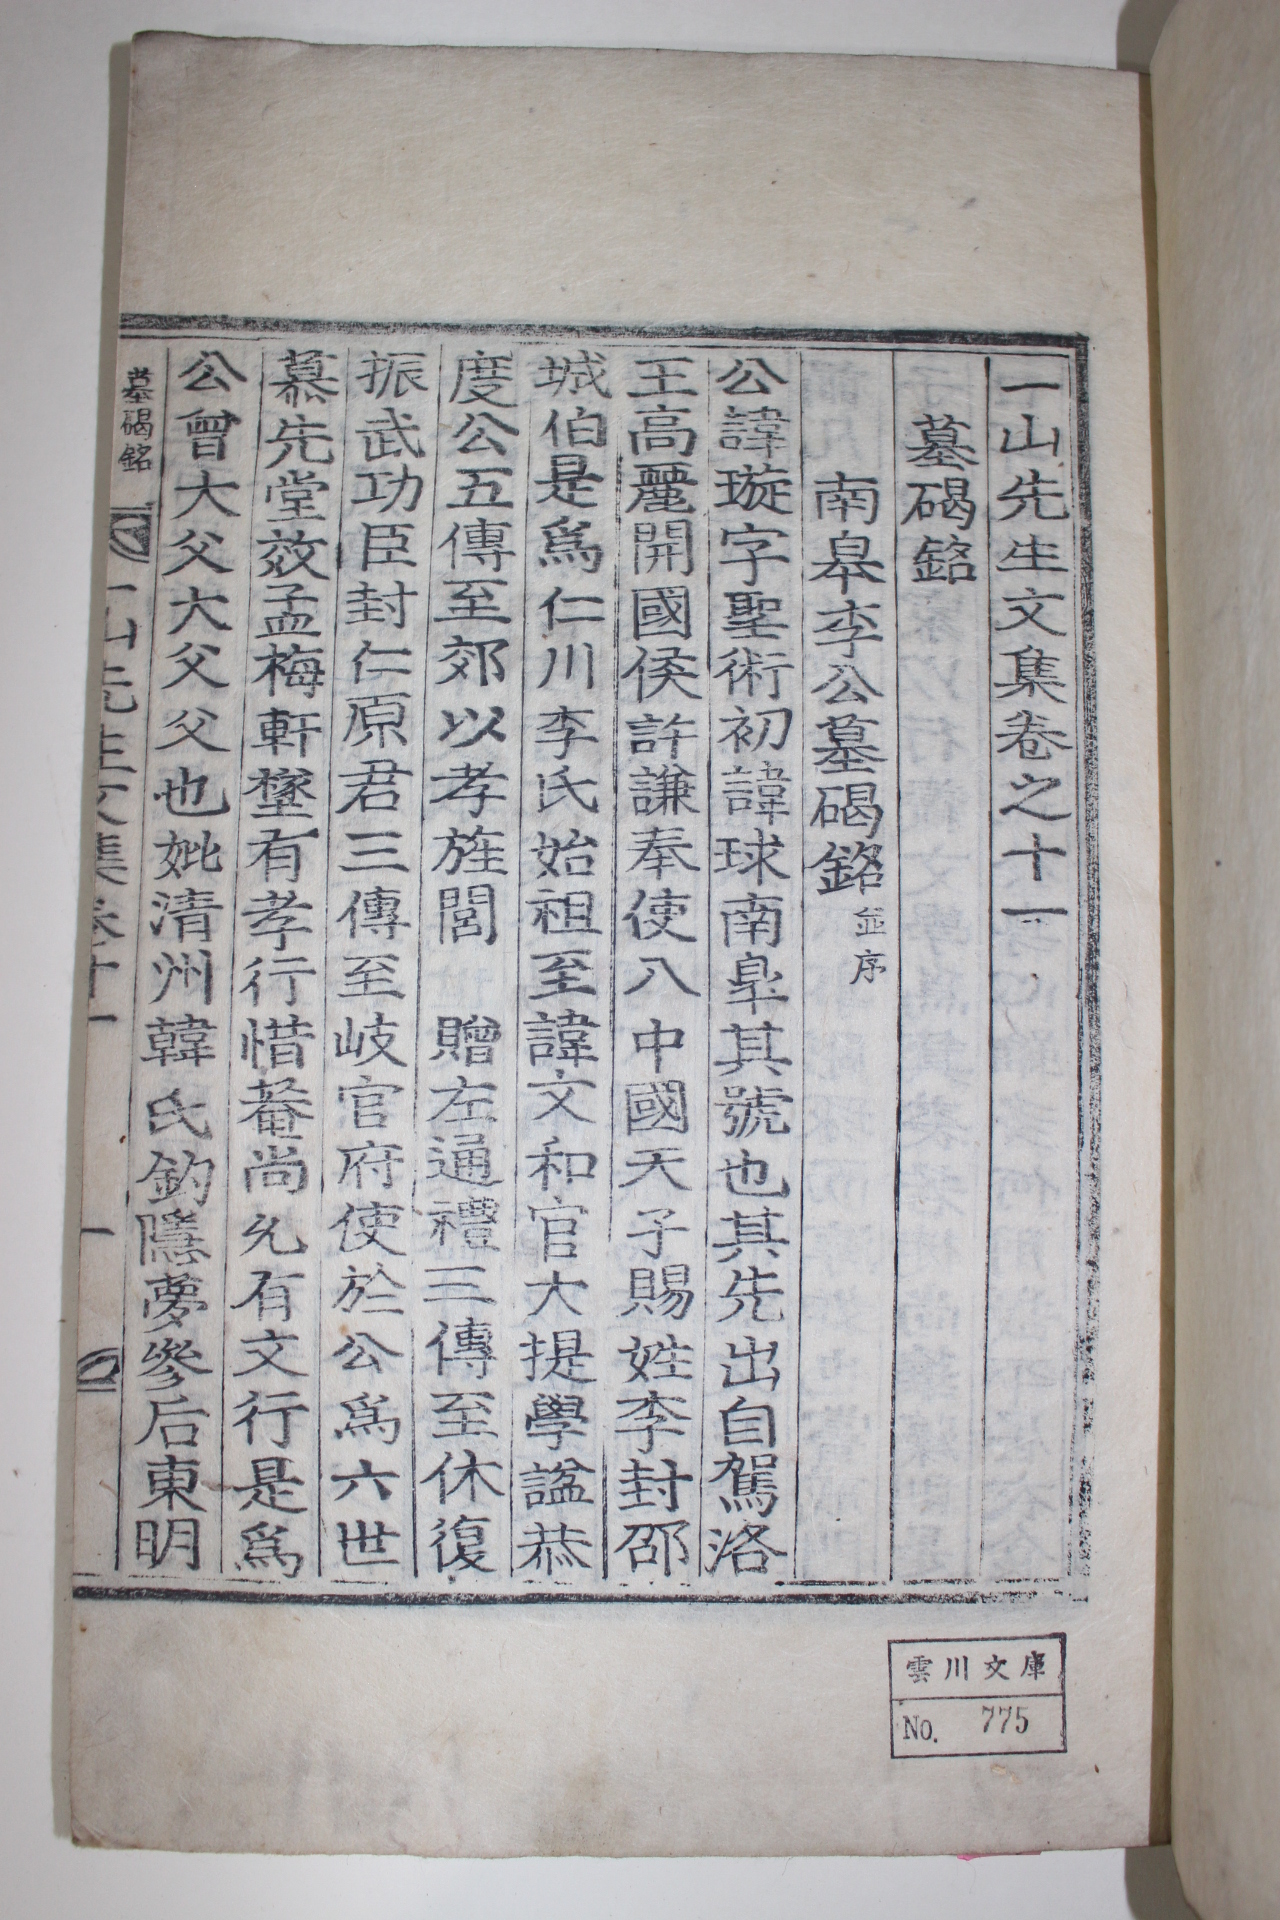 一山先生文集卷之十一
墓碣銘
南皐李公墓碣銘並序
公諱璇字聖術初諱球南皐其號也其先出自駕洛
王高麗開國侯許謙奉使入中國天子賜姓李封邵
城伯是爲仁川李氏始祖至諱文和官大提學諡恭
度公五傳至郊以孝旌閭 贈左通禮三傳至休復
振武功臣封仁原君三傳至岐官府使於公爲六世
慕先堂效孟梅軒㙺有孝行惜菴尚允有文行是爲
公曾大父大父父也妣清州韓氏釣隱夢參后東明
墓碣銘 一山先生文集卷十一 一
雲川文庫
No. 775